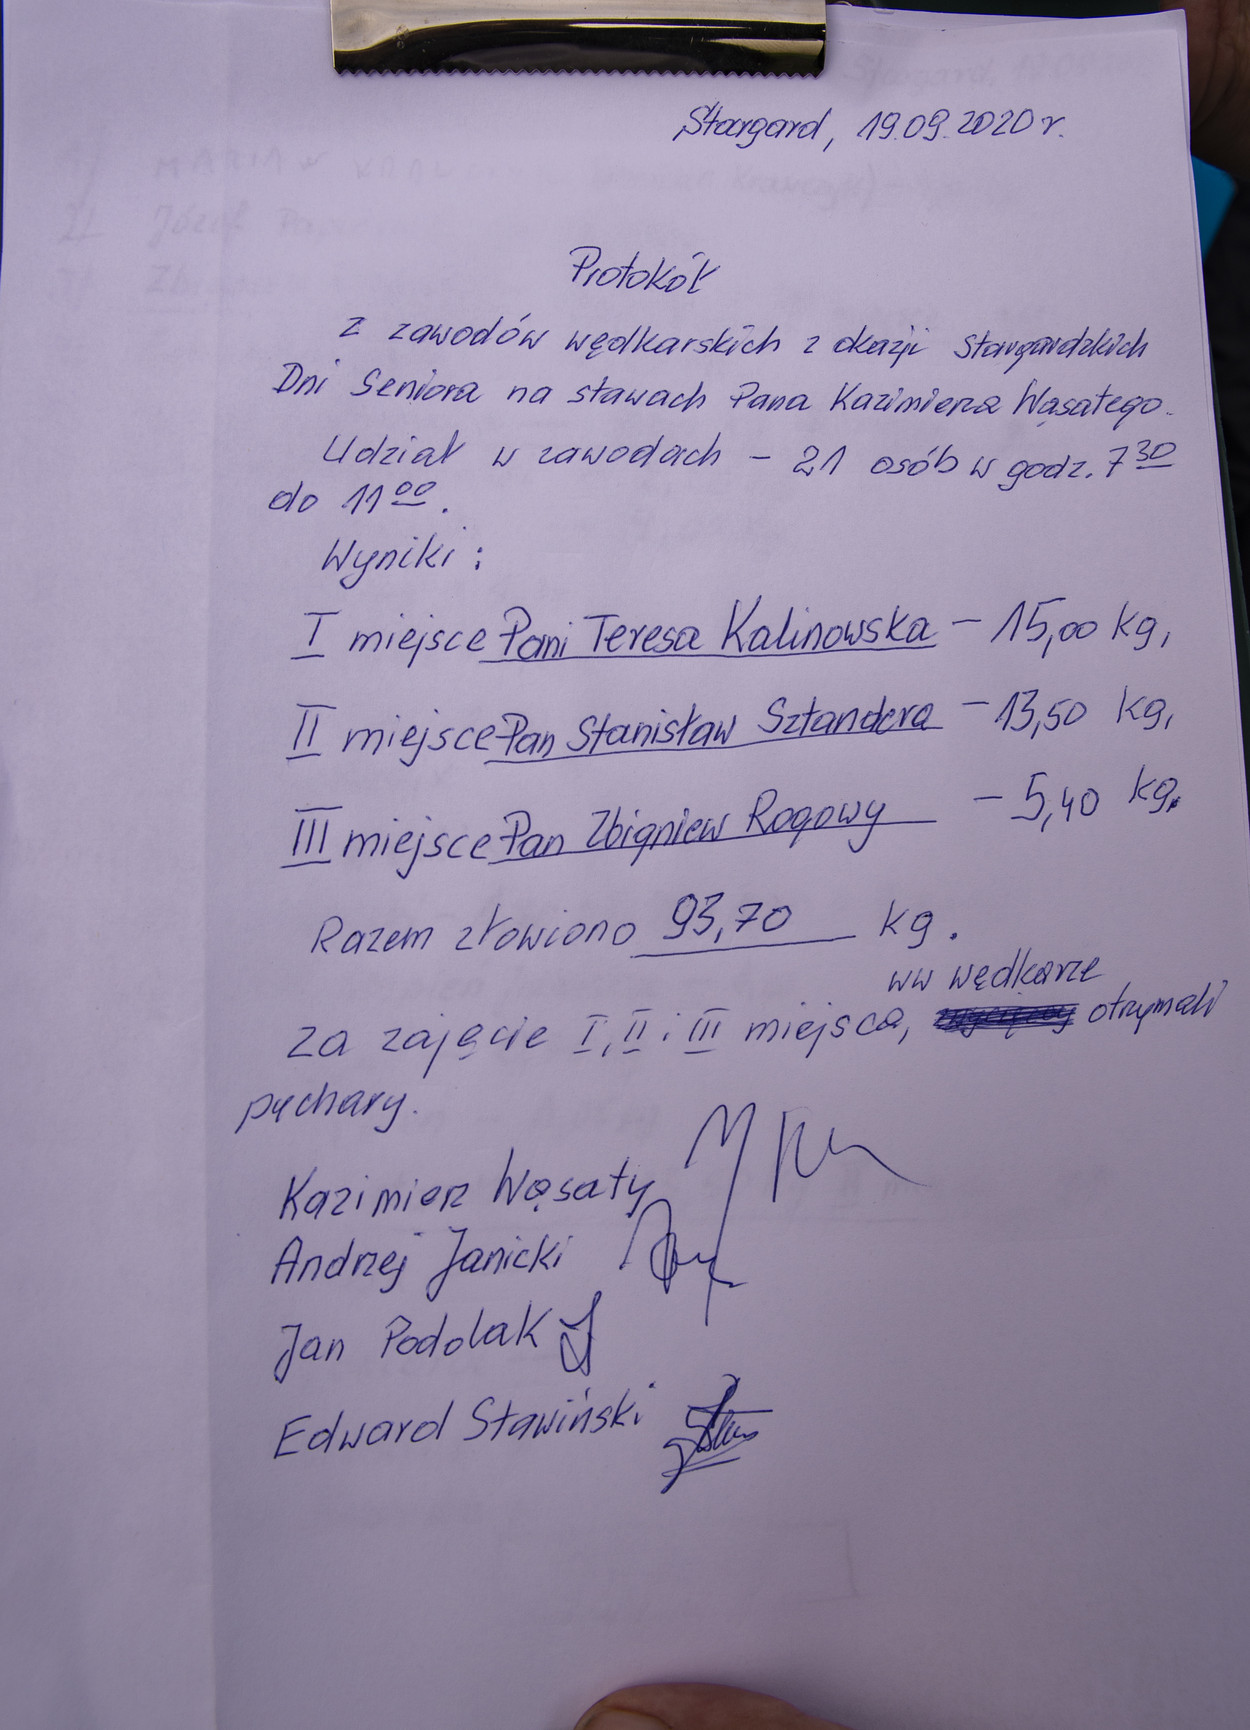 Stargard, 19.09.2020 r.
Protokół
z zawodów wędkarskich z okazji Stargardzkich
Dni Seniora na stawach Pana Kazimierza Wąsatego.
Udział w zawodach - 21 osób w godz. 7 30
do 11 00.
Wyniki:
I miejsce Pani Teresa Kalinowska - 15,00 kg,
II miejsce Pan Stanisław Sztandera - 13,50 kg,
III miejsce Pan Zbigniew Rogowy - 5,40 kg.
Razem złowiono 93,70 kg.
ww wędkarze
za zajęcie I, II i III miejsca, otrzymali
puchary.
Kazimierz Wąsaty
Andrzej Janicki
Jan Podolak
Edward Stawiński